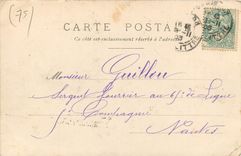 (75)
CARTE POSTALE
Ce côté est exclusivement réservé à l'adresse
Monsieur Guillou
Sergent fourrier au de Ligne
Compagnie
Nantes